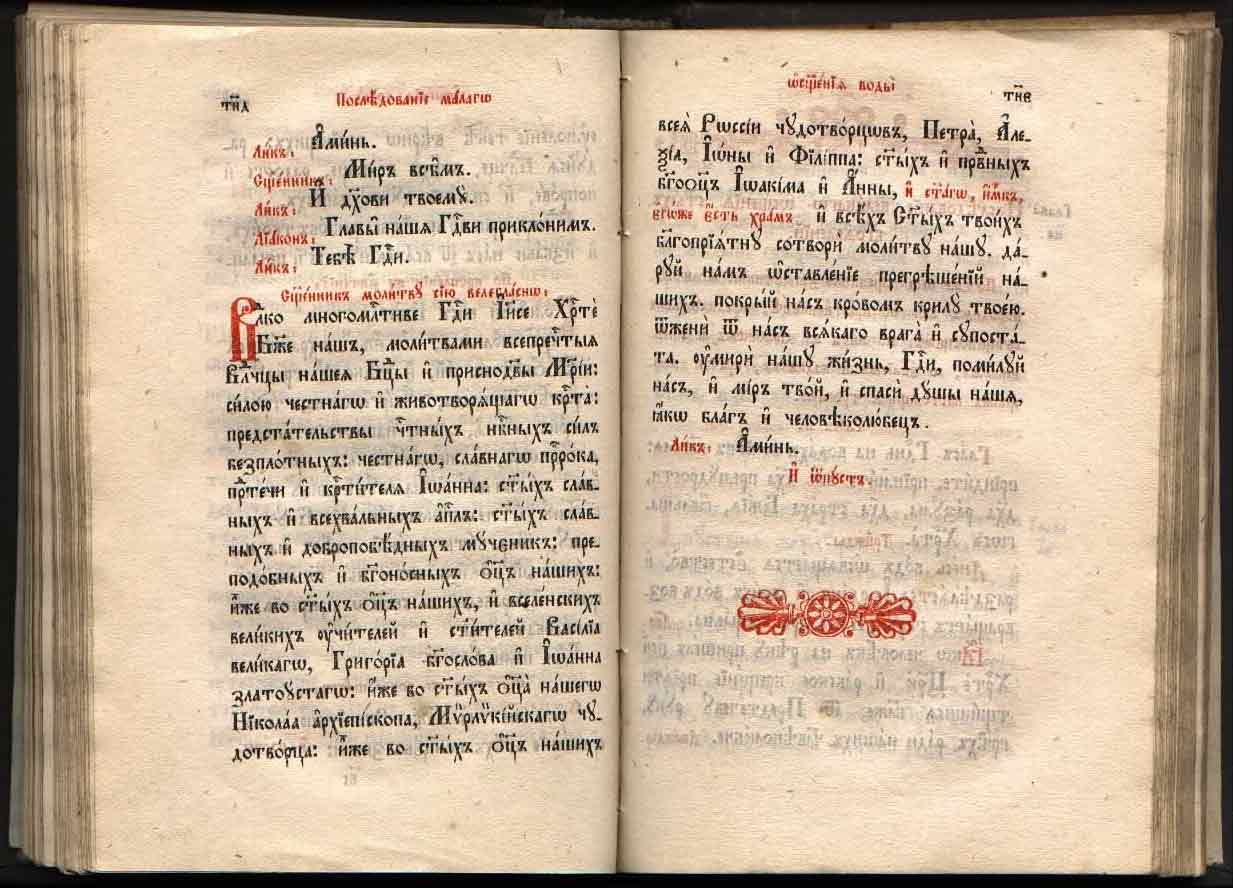 тн҃д
Послѣ́дованїе ма́лагѡ
Ли́къ: А҆ми́нь.
Сщ҃е́нникъ: Ми́ръ всѣ̑мъ.
Ли́къ: И҆ дх҃ови твоемꙋ̀.
Дїа́конъ: Главы̑ на́шя Гдⷭ҇ви приклони́мъ.
Ли́къ: Тебѣ̀ Гдⷭ҇и.
Сщ҃е́нникъ моли́твꙋ сїю̀ велегла́снѡ:
Влⷣко многомлⷭ҇тиве Гдⷭ҇и І҆и҃се Хрⷭ҇тѐ
Бж҃е на́шъ, моли́твами всепречⷭ҇тыя
Влⷣчцы на́шея Бцⷣы и҆ приснодв҃ы Мр҃і́и:
си́лою честна́гѡ и҆ животворѧ́щагѡ крⷭ҇та̀:
предста́тельствы чⷭ҇тны́хъ нбⷭ҇ныхъ си́лъ
безпло́тныхъ: честна́гѡ, сла́внагѡ прⷪ҇ро́ка,
прⷣте́чи и҆ крⷭ҇ти́теля І҆ѡа́нна: ст҃ы́хъ сла́в-
ныхъ и҆ всехва́льныхъ а҆пⷭ҇лъ: ст҃ы́хъ сла́в-
ныхъ и҆ добропобѣ́дныхъ мꙋ́ченикъ: пре-
подо́бныхъ и҆ бг҃оно́сныхъ ѻ҆ц҃ъ на́шихъ:
и҆́же во ст҃ы́хъ ѻ҆ц҃ъ на́шихъ, и҆ вселе́нскихъ
вели́кихъ ᲂу҆чи́телей и҆ ст҃и́телей Васі́лїа
вели́кагѡ, Григо́рїа бг҃осло́ва и҆ І҆ѡа́нна
златоꙋ́стагѡ: и҆́же во ст҃ы́хъ ѻ҆ц҃а̀ на́шегѡ
Нїкола́а а҆рхїепі́скопа, Мѷрлѷкі́йскагѡ чꙋ-
дотво́рца: и҆́же во ст҃ы́хъ ѻ҆ц҃ъ на́шихъ
ѡ҆сщ҃е́нїя воды̀
тн҃є
всея̀ Рѡссі́и чꙋдотво́рцѡвъ, Петра̀, А҆ле-
ѯі́а, І҆ѡ́ны и҆ Фїлі́ппа: ст҃ы́хъ и҆ првⷣныхъ
бг҃оѻц҃ъ І҆ѡакі́ма и҆ А҆́нны, и҆ ст҃а́гѡ, и҆́м҃къ,
єгѡ́же є҆́сть хра́мъ. и҆ всѣ́хъ Ст҃ы́хъ твои́хъ
благопрїя́тнꙋ сотворѝ моли́твꙋ на́шꙋ. да́-
рꙋй на́мъ ѡ҆ставле́нїе прегрѣше́нїй на́-
шихъ. покры́й на́съ кро́вомъ крилꙋ̀ твоє́ю.
ѿженѝ ѿ на́съ вся́каго врага̀ и҆ сꙋпоста́-
та. ᲂу҆мирѝ на́шꙋ жи́знь, Гдⷭ҇и, поми́лꙋй
на́съ, и҆ мі́ръ тво́й, и҆ спасѝ дꙋ́шы на́шя,
ꙗ҆́кѡ бл҃гъ и҆ человѣколю́бецъ.
Ли́къ: А҆ми́нь.
И҆ ѿпꙋ́стъ.